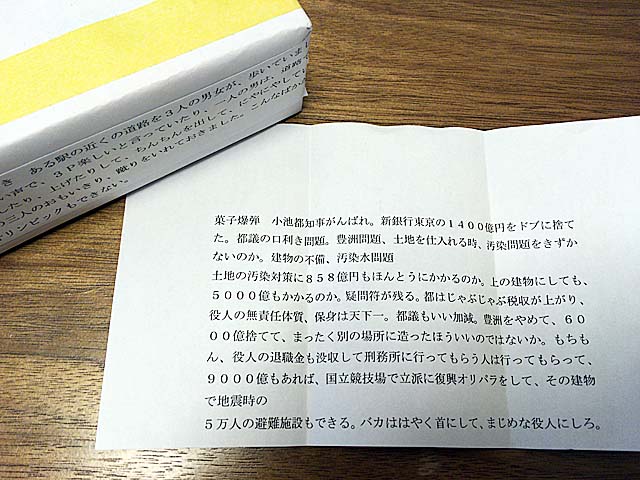 き　ある駅の近くの道路を３人の男女が、歩いていまし
い声で、３Ｐ楽しいと言っていたり、一人の男は、道路で
したり、上げたりして、ちんちんを出して、にやにやしてい
の三人のおもいきり、蹴りをいれておきました。　こんなばかの
リンピックもできない。
菓子爆弾　小池都知事がんばれ。新銀行東京の１４００億円をドブに捨て
た。都議の口利き問題。豊洲問題、土地を仕入れる時、汚染問題をきずか
ないのか。建物の不備、汚染水問題
土地の汚染対策に８５８億円もほんとうにかかるのか。上の建物にしても、
５０００億もかかるのか。疑問符が残る。都はじゃぶじゃぶ税収が上がり、
役人の無責任体質、保身は天下一。都議もいい加減。豊洲をやめて、６０
００億捨てて、まったく別の場所に造ったほういいのではないか。もちも
ん、役人の退職金も没収して刑務所に行ってもらう人は行ってもらって、
９０００億もあれば、国立競技場で立派に復興オリパラをして、その建物
で地震時の
５万人の避難施設もできる。バカははやく首にして、まじめな役人にしろ。